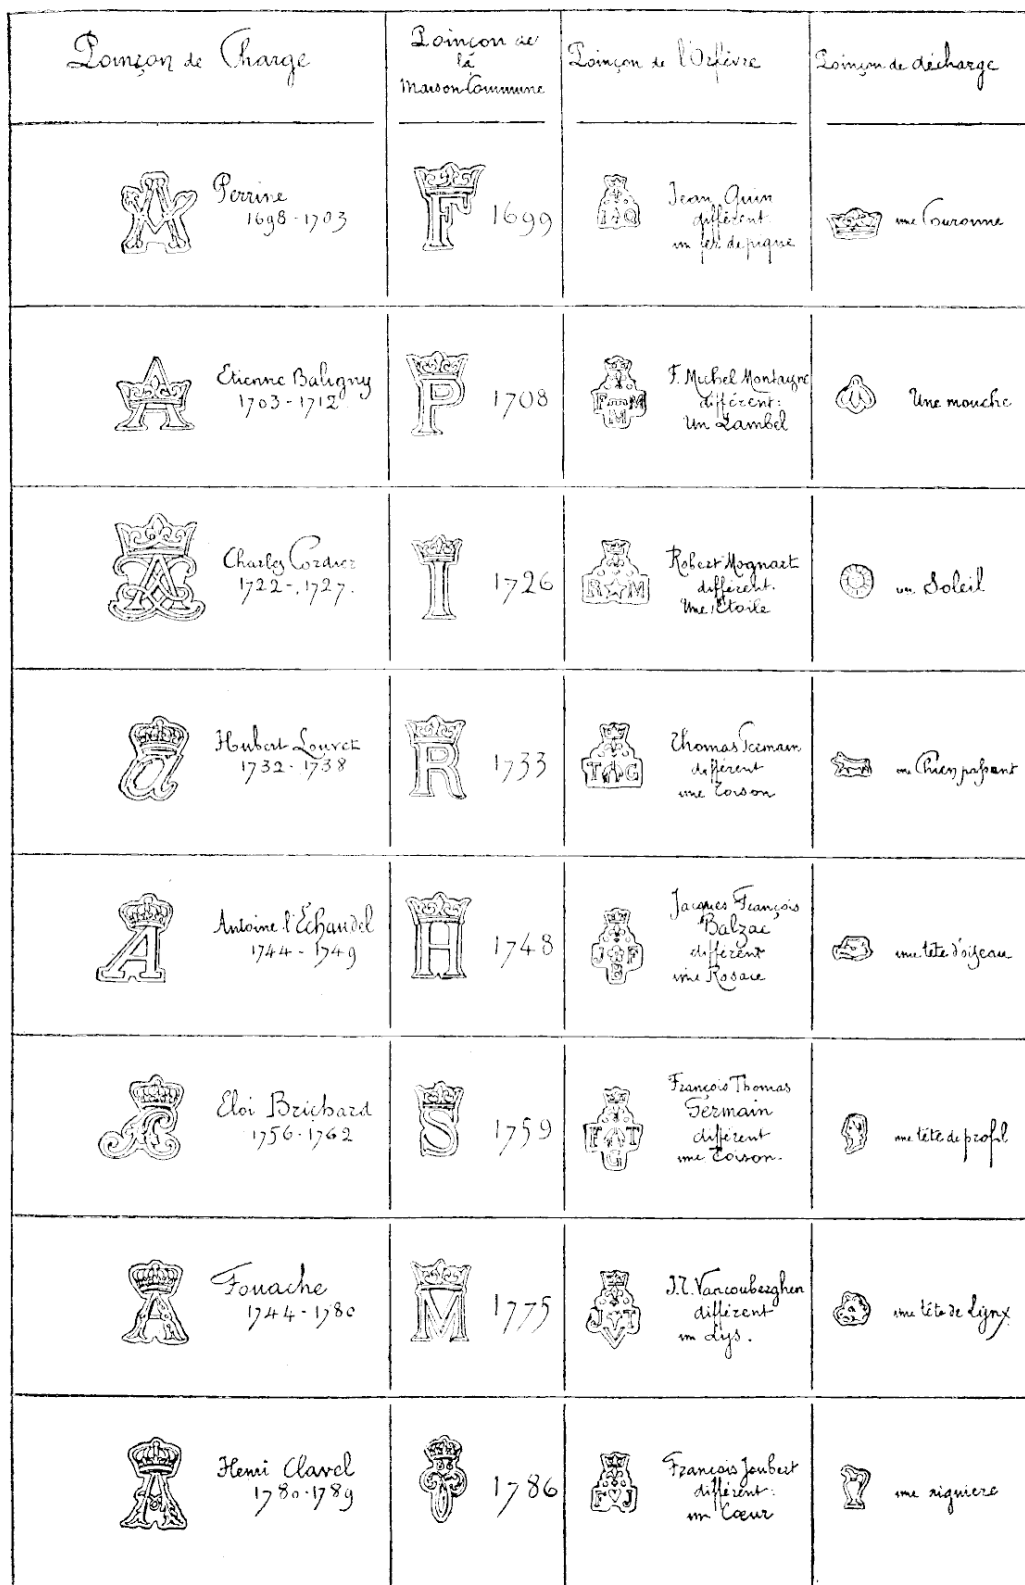 Poinçon de Charge
Poinçon de
la
Maison Commune
Poinçon de l'Orfèvre
Poinçon de décharge
Perrine
1698-1703
F 1699
J Q
Jean Quin
différent
un fer de pique
une Couronne
A
Etienne Baligny
1703-1712
P 1708
F M
M
F. Michel Montagne
différent:
Un Lambel
Une mouche
Charles Cordier
1722-1727.
I 1726
R M
Robert Mognart
différent.
Une Etoile
un Soleil
a
Hubert Louvet
1732-1738
R 1733
T G
Thomas Germain
différent
une Toison
un Chien passant
A
Antoine l'Échaudel
1744-1749
H 1748
J F
B
Jacques François
Balzac
différent
une Rosace
une tête d'oiseau
Eloi Brichard
1756-1762
S 1759
F T
G
François Thomas
Germain
différent
une Toison.
une tête de profil
A
Fouache
1744-1780
M 1775
J T
V
Vancouberghen
différent
un Lys.
une tête de Lynx
A
Henri Clavel
1780-1789
1786
F J
François Joubert
différent:
un Cœur
une aiguiere